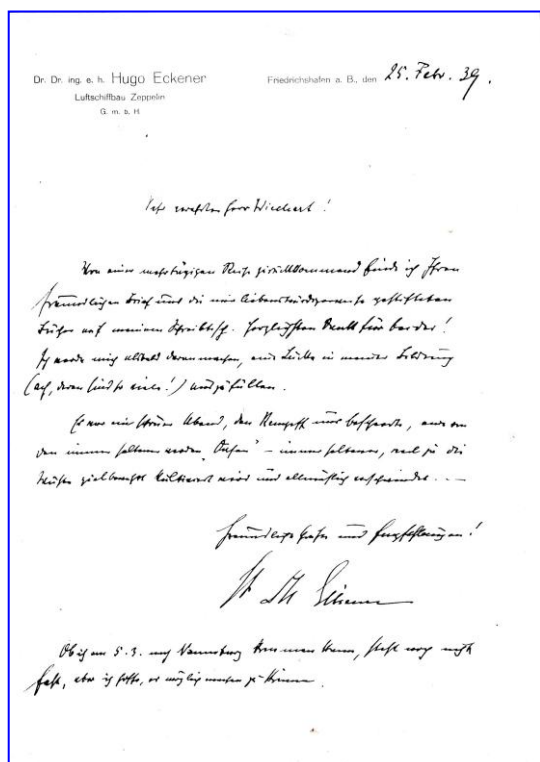 Dr. Dr. ing. e. h. Hugo Eckener
Luftschiffbau Zeppelin
G. m. b. H
Friedrichshafen a. B., den 25. Febr. 39.
Sehr verehrter Herr Wiechert!
Von einer mehrtägigen Reise zurückkommend finde ich Ihren
freundlichen Brief und die mir liebenswürdigerweise gestifteten
Bücher auf meinem Schreibtisch. Herzlichsten Dank für beides!
Ich werde mich alsbald daran machen, eine Lücke in meiner Bildung
(ach, deren sind so viele!) auszufüllen.
Es war ein schöner Abend, den Kempff uns bescherte, eine von
den immer seltener werdenden "Oasen" – immer seltener, weil ja die
Wüste zielbewußt kultiviert wird und allmählich verschwindet. . . —
Freundliche Grüße und Empfehlungen!
Ihr Dr. Eckener
Ob ich am 5. 3. nach kommen kann, steht noch nicht
fest, aber ich hoffe, es möglich machen zu können.